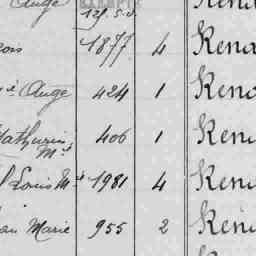 Ange 129.5.d Kena
1877 4 Kena
Ange 424 1 Kena
Mathurin 406 1 Kena
M.
Louis M. 1981 4 Kena
Marie 955 2 Kena